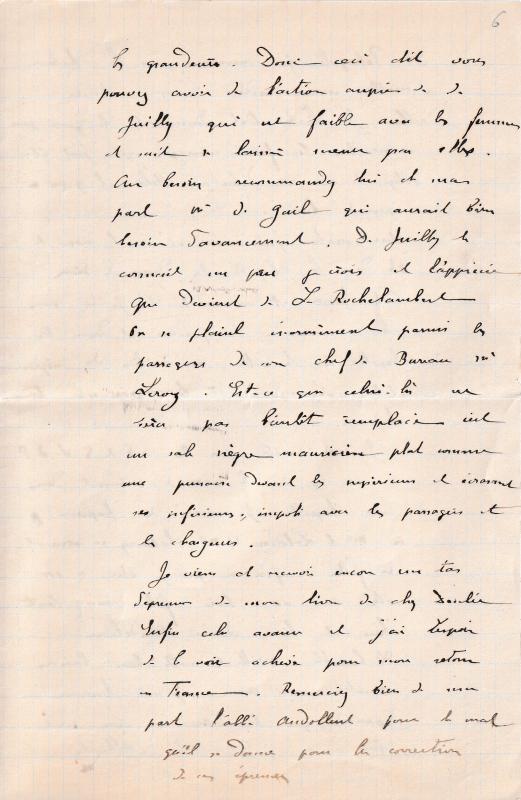 6
les grandeurs. Donc ceci dit vous
pouvez avoir de l'action auprès de de
Juilly qui est faible avec les femmes
et sait se laisser mener par elles.
Au besoin recommandez lui et ma
part Mr de Gail qui aurait bien
besoin d'avancement. De Juilly le
connait un peu je crois et l'apprécie
Que devient de La Rochelambert
On se plaint énormément parmi les
passagers de son chef de Bureau Mr
Leroy. Est-ce que celui-là ne
sera pas bientôt remplacé c'est
un sale nègre mauricien plat comme
une punaise devant les supérieurs et écrasant
ses inférieurs, impoli avec les passagers et
les chargeurs.
Je viens de recevoir encore un tas
d'épreuves de mon livre de chez
Enfin cela avance et j'ai l'espoir
de le voir achevé pour mon retour
en France. Remerciez bien de ma
part l'abbé Audollent pour le mal
qu'il se donne pour les correction
de ces épreuves